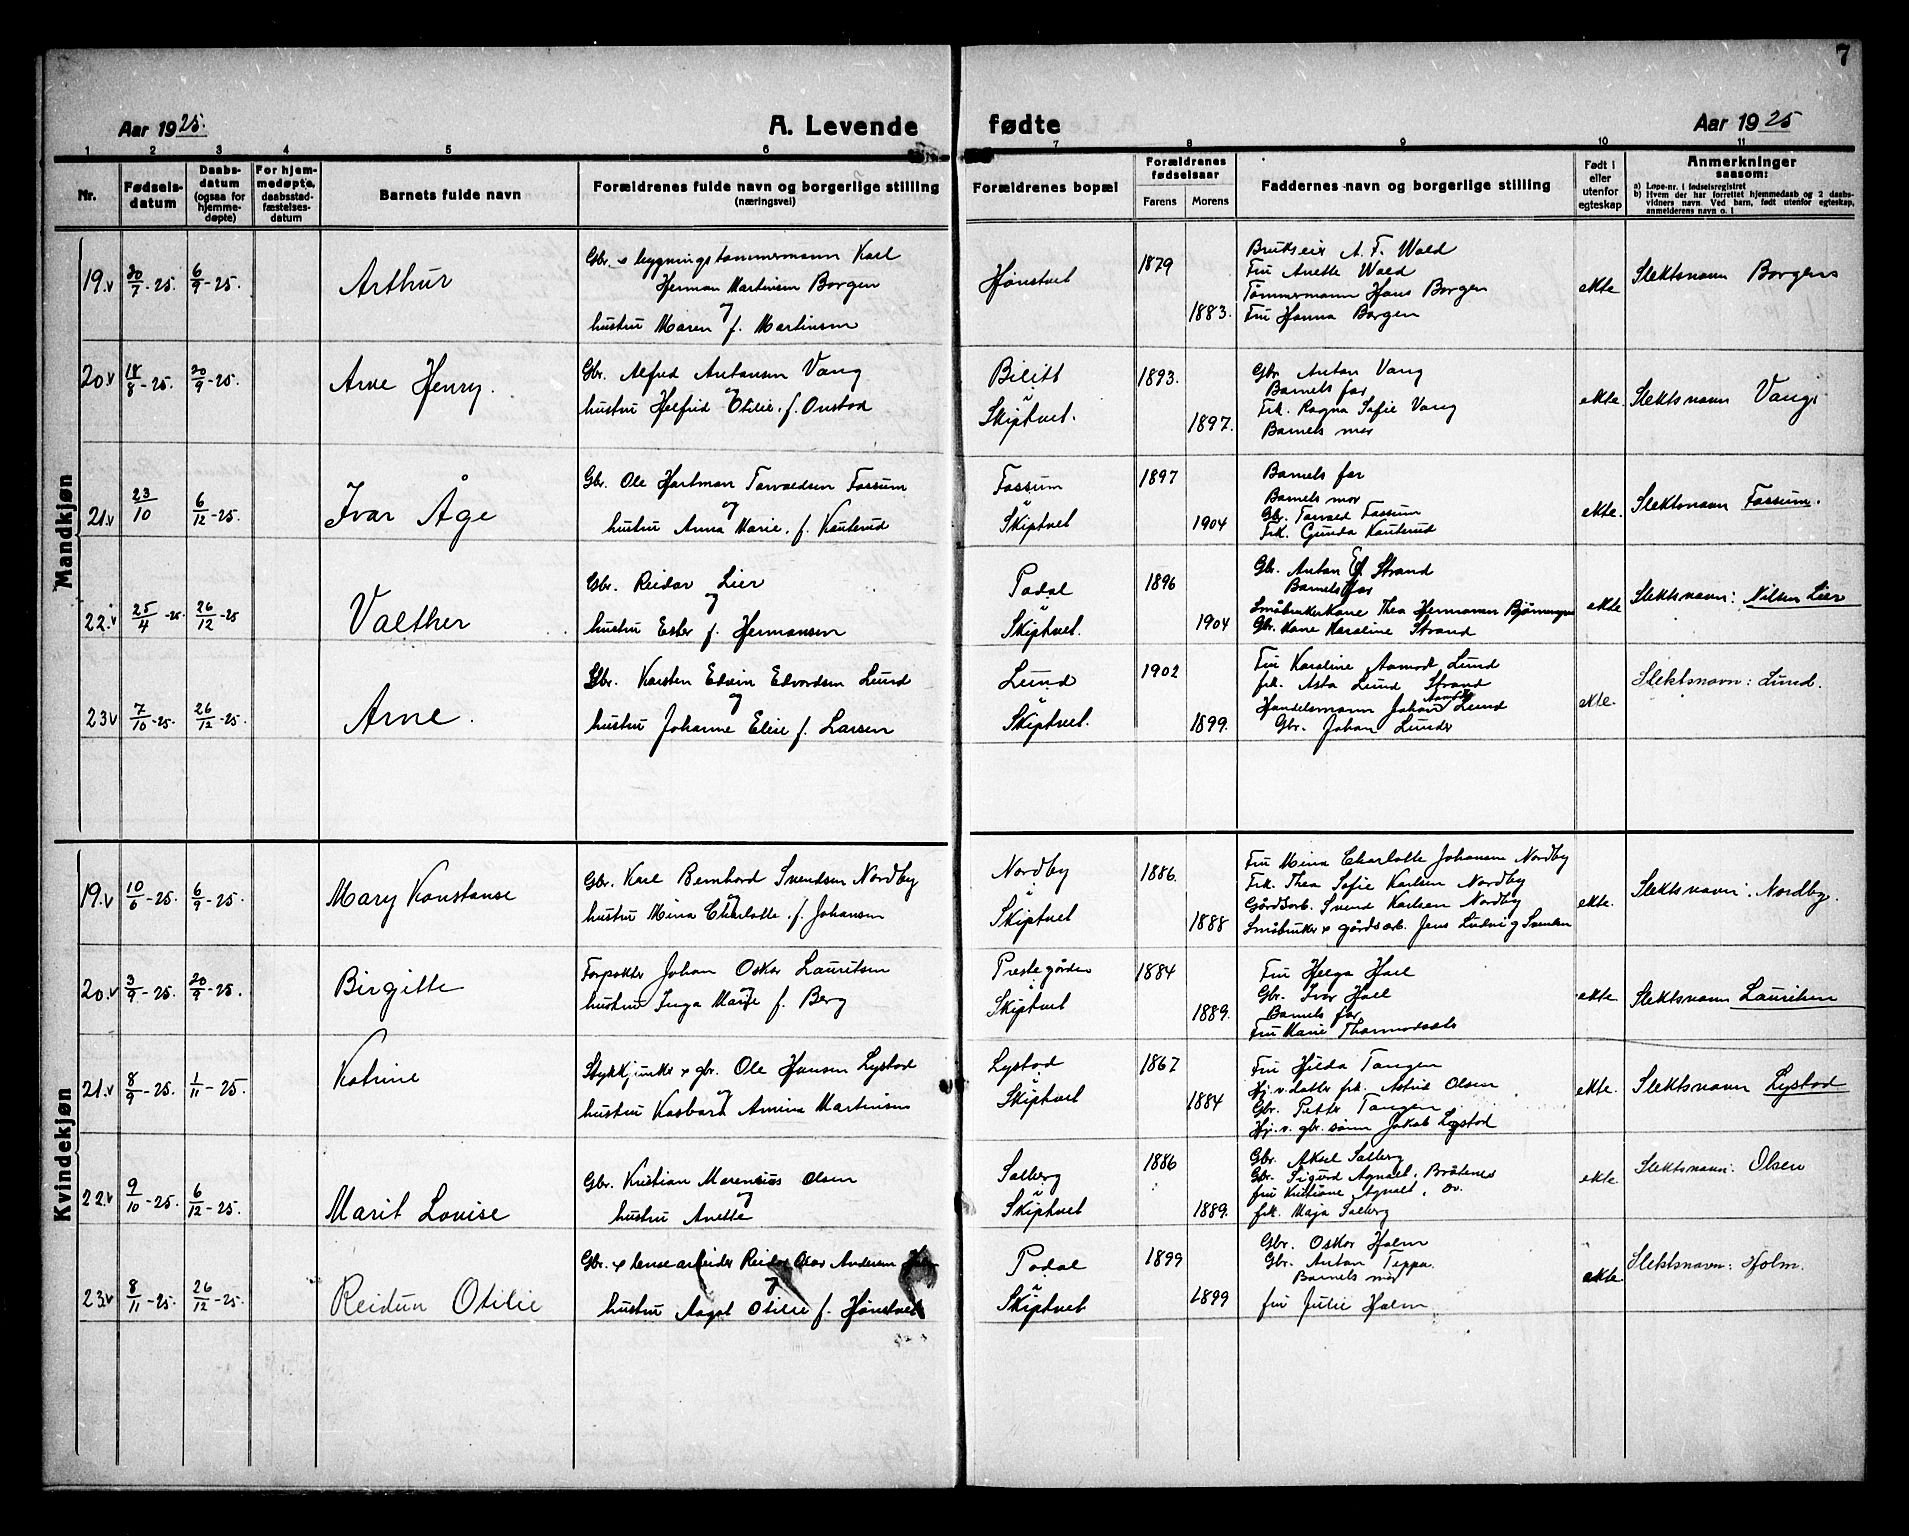 7
Aar 1925.
A. Levende fødte
Aar 1925
1 2 3 4 5 6 7 8 9 10 11
Nr.
Fødsels-
datum
Daabs-
datum
(ogsaa for
hjemme-
døpte)
For hjem-
medøpte,
daabsstad-
fæstelses-
datum
Barnets fulde navn
Forældrenes fulde navn og borgerlige stilling
(næringsvei)
Forældrenes bopæl
Forældrenes
fødselsaar
Farens Morens
Faddernes navn og borgerlige stilling
Født i
eller
utenfor
egteskap
Anmerkninger
saasom:
a) Løpe-nr. i fødselsregistret
b) Hvem der har forrettet hjemmedaab og 2 daabs-
vidners navn. Ved barn, født utenfor egteskap,
anmelderens navn o. l
Mandkjøn
19.v 20/7-25 6/9-25. Arthur
Gbr. & bygningstømmermann Karl
Herman Martinsen Borgen
og
hustru Maren f. Martinsen
Hønstvet
1879
1883.
Brukseier A. F. Wold
Fru Anette Wold
Tømmermann Hans Borgen
Fru Hanna Borgen
ekte
Slektsnavn Borgens
20.v 14/8-25. 20/9-25. Arne Henry.
Gbr. Alfred Antonsen Vang
og
hustru Helfrid Otilie. f. Onstad
Bilitt
Skiptvet.
1893.
1897.
Gbr. Anton Vang
Barnets far
Frk. Ragna Sofie Vang
Barnets mor
ekte.
Slektsnavn Vang
21.v 23/10 6/12-25. Ivar Åge
Gbr. Ole Hartman Torvaldsen Fossum
og
hustru Anna Marie. f. Kauterud
Fossum
Skiptvet
1897
1904
Barnets far
Barnets mor
Gbr. Torvald Fossum
Frk. Gunda Kauterud
ekte.
Slektsnavn Fossum.
22.v 25/4-25. 26/12-25 Valther
Gbr. Reidar Lier
og
hustru Ester f. Hermansen
Podal
Skiptvet.
1896
1904
Gbr. Anton Strand
Barnets far
Småbrukerkone Thea Hermansen
Gbr. Kone Karoline Strand
ekte
Slektsnavn: Nilsen Lier
23.v 7/10-25. 26/12-25. Arne.
Gbr. Karsten Edvin Edvardsen Lund
og
hustru Johanne Elise f. Larsen
Lund
Skiptvet.
1902
1899.
Fru Karoline Aamodt Lund
frk. Asta Lund Strand
Handelsmann Johan Lund
Gbr. Johan Lunds
ekte.
Slektsnavn: Lund.
Kvindekjøn
19.v 10/6-25. 6/9-25. Mary Konstanse
Gbr. Karl Bernhard Svendsen Nordby
og
hustru Mina Charlotte. f. Johansen
Nordby
Skiptvet
1886.
1888
Fru Mina Charlotte Johansen Nordby
Frk. Thea Sofie Karlsen Nordby
Gårdsarb. Svend Karlsen Nordby
Småbruker & gårdsarb. Jens Ludvig Svendsen
ekte.
Slektsnavn: Nordby.
20.v 3/9-25. 20/9-25. Birgitte
Forpakter Johan Oskar Lauritsen
og
hustru Inga Marie f. Berg
Prestegården
Skiptvet
1884
1889.
Fru Helga Hoel
Gbr. Ivar Hoel
Barnets far
Fru Marie Thormodsæter
ekte
Slektsnavn Lauritsen
21.v 8/9-25. 1/11-25. Katrine
Stykkjunker & gbr. Ole Hansen Lystad
og
hustru Kasbara Amina Martinsen
Lystad
Skiptvet
1867
1884
Fru Hilda Tangen
Hj. v. datter frk. Astrid Olsen
Gbr. Petter Tangen
Hj. v. gbr. sønn Jakob Lystad
ekte.
Slektsnavn Lystad
22.v 9/10-25. 6/12-25. Marit Lovise
Gbr. Kristian Marensius Olsen
og
hustru Anette
Solberg
Skiptvet
1886
1889.
Gbr. Aksel Solberg
Gbr. Sigurd Agnalt, Bråtenes
fru Kristiane Agnalt,
frk. Maja Solberg
ekte.
Slektsnavn: Olsen
23.v 8/11-25. 26/12-25. Reidun Otilie
Gbr. & lensearbeider Reidar Olav Andersen
og
hustru Aagot Otilie f. Hønstvet
Podal
Skiptvet
1899
1899
Gbr. Oskar Holm
Gbr. Anton Teppa.
Barnets mor
fru Julie Holm
ekte
Slektsnavn: Holm.